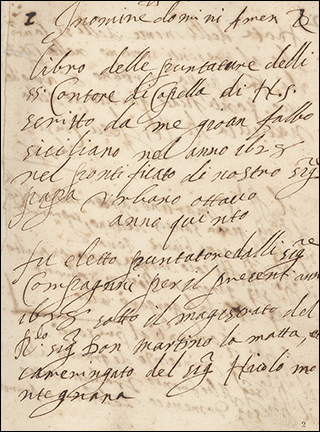 1 In nomine domini Amen
libro delle puntature delli
ss. Cantore di Capella di N. S.
scritto da me gioan falbo
siciliano nel anno 1628
nel pontificato di nostro sigre
Papa Urbano ottavo
anno quinto
fu eletto puntatore dalli sigre
Compagni per il presente anno
1628 sotto il magistrato del
sigr Don martino la matta, et
cameringato del sigr Nicolò mo
ntegnana
2